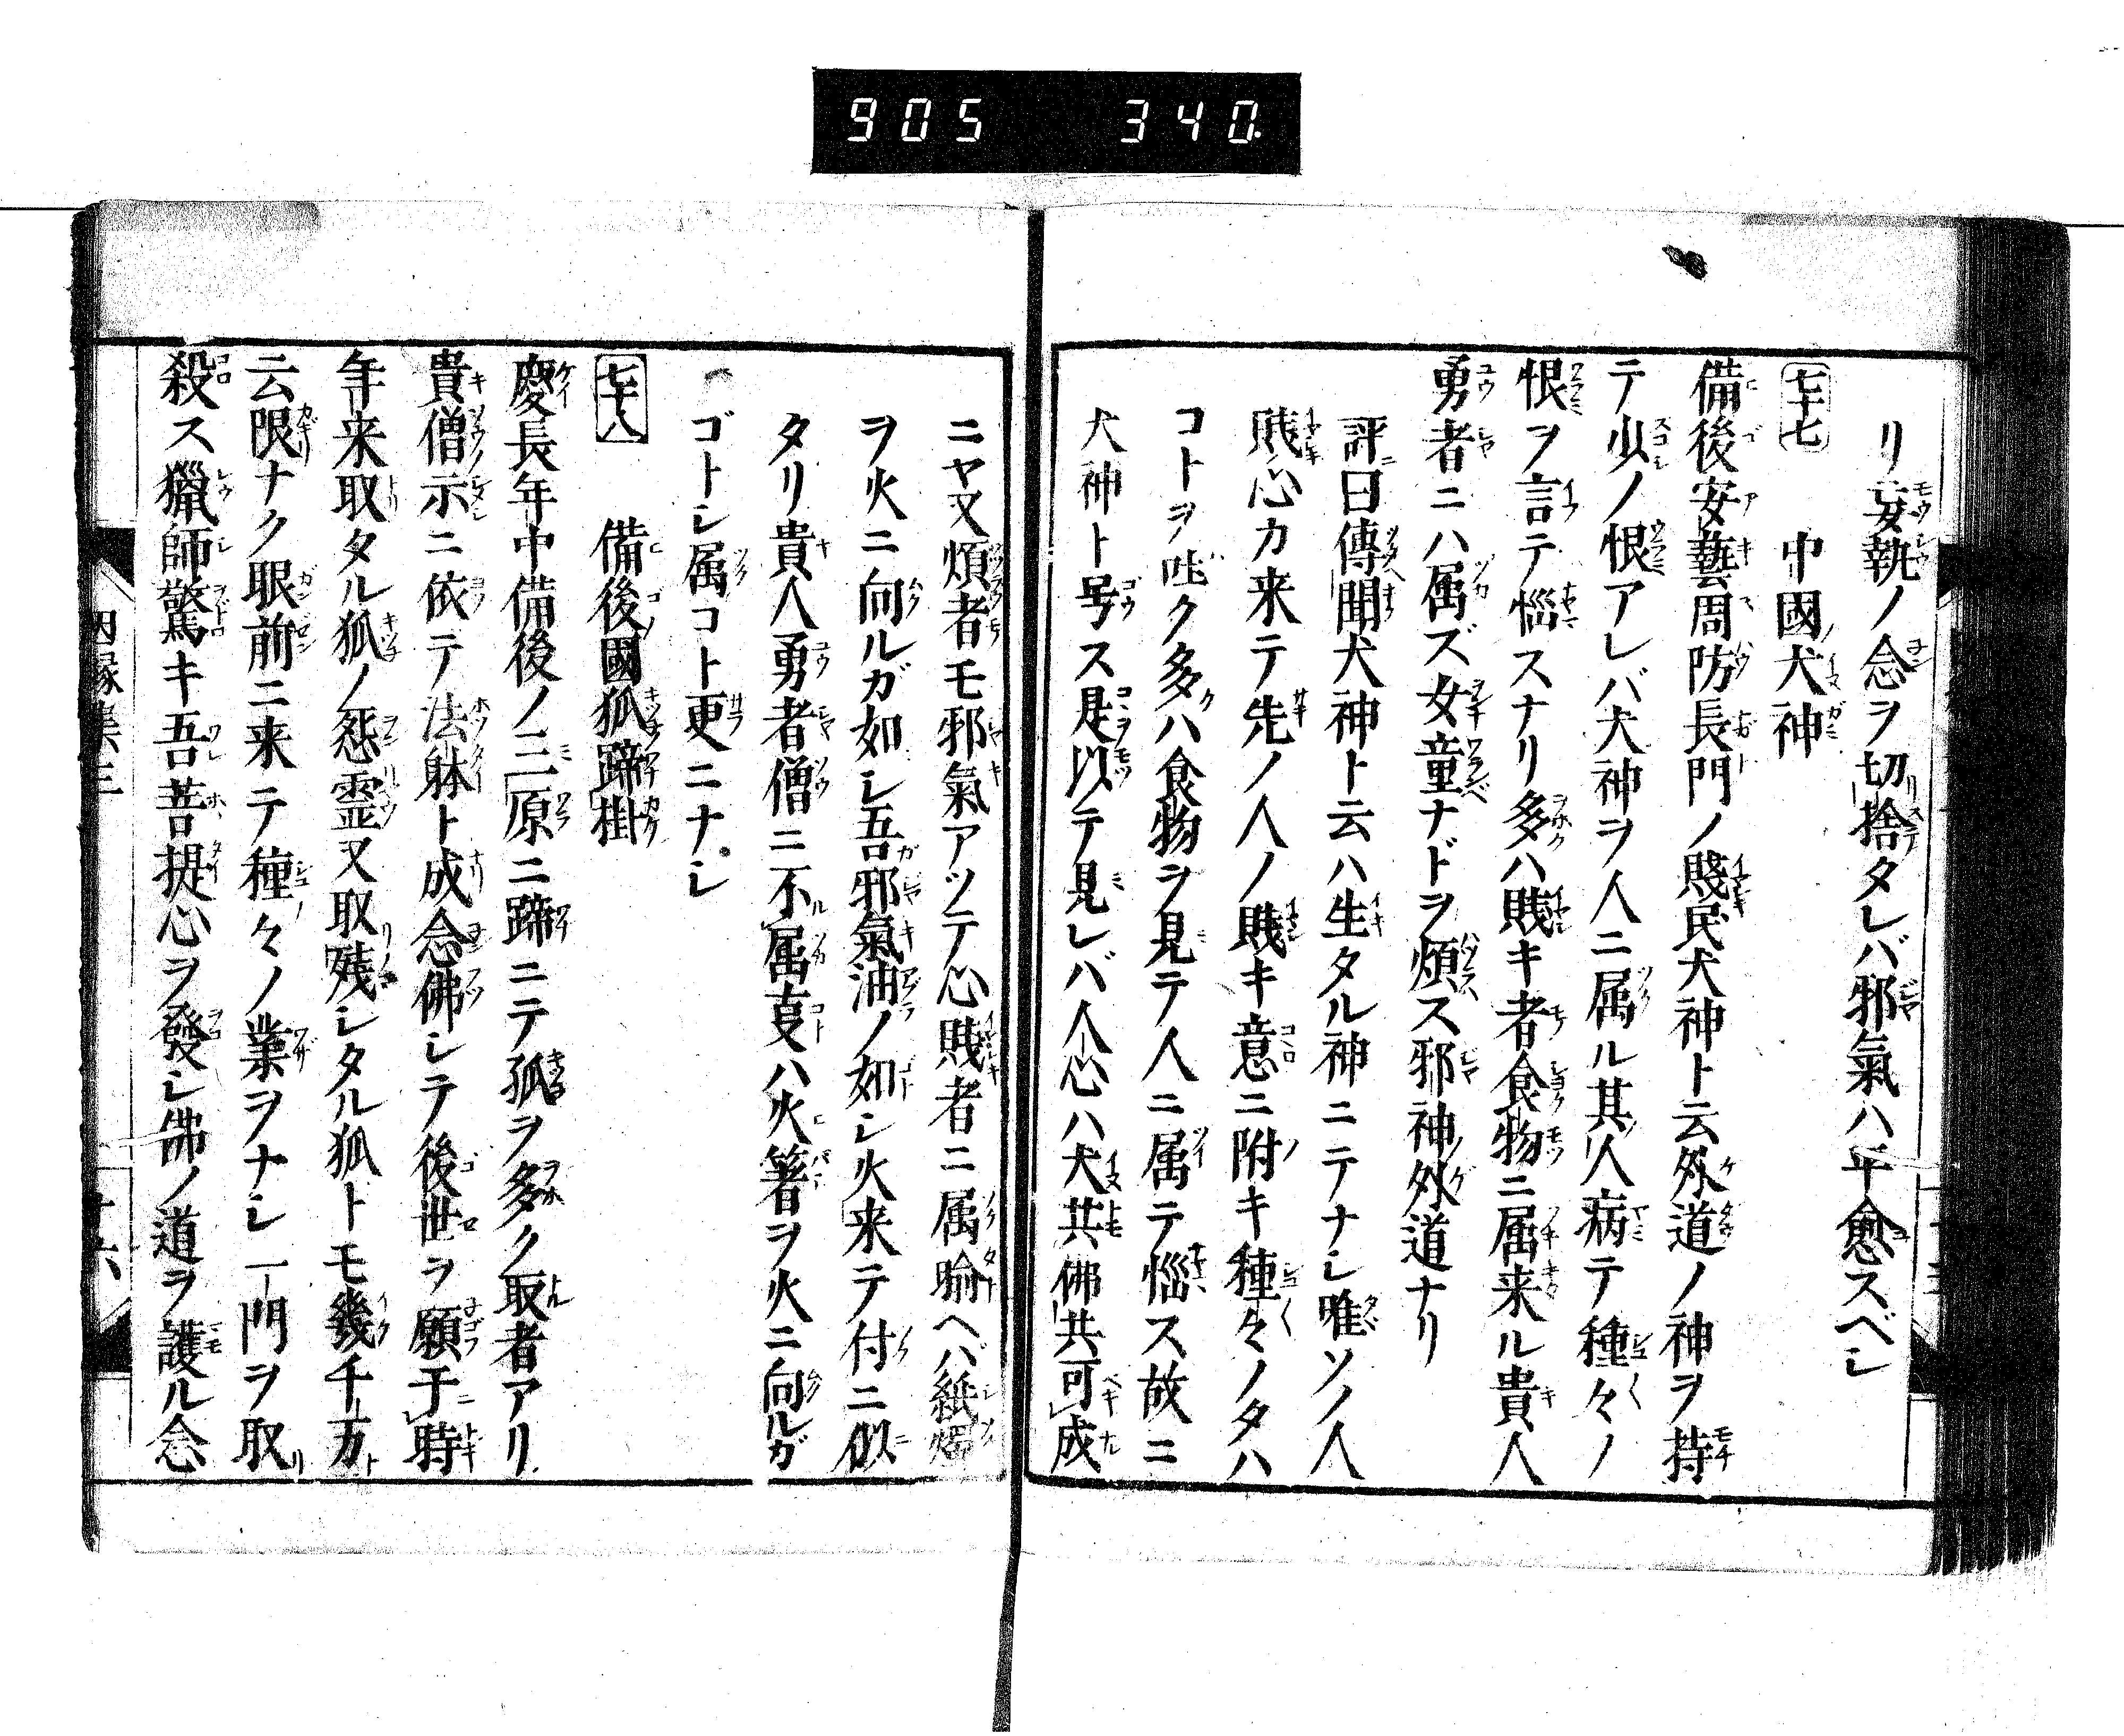 905 340
リ妄執ノ念ヲ切捨タレバ邪氣ハ平愈スベシ
七十七 中國犬神
備後安藝周防長門ノ賤民犬神ト云外道ノ神ヲ持
テ少ノ恨アレバ犬神ヲ人ニ属ル其人病テ種々ノ
恨ヲ言テ惱スナリ多ハ賤キ者食物ニ属来ル貴人
勇者ニハ属ズ女童ナドヲ煩ス邪神外道ナリ
評曰傳聞犬神ト云ハ生タル神ニテナシ唯ソノ人
賤心カ来テ先ノ人ノ賤キ意ニ附キ種々ノタハ
コトヲ吐ク多ハ食物ヲ見テ人ニ属テ惱ス故ニ
犬神ト号ス是以テ見レバ人心ハ犬共佛共可成
ニヤ又煩者モ邪氣アツテ心賤者ニ属喻ヘバ紙燭
ヲ火ニ向ルガ如シ吾邪氣油ノ如シ火来テ付ニ似
タリ貴人勇者僧ニ不属㕝ハ火箸ヲ火ニ向ルガ
ゴトシ属コト更ニナシ
七十八 備後國狐蹄掛
慶長年中備後ノ三原ニ蹄ニテ狐ヲ多ク取者アリ
貴僧示ニ依テ法躰ト成念佛シテ後世ヲ願于時
年来取タル狐ノ怨霊又取残シタル狐トモ幾千万ト
云限ナク眼前ニ来テ種々ノ業ヲナシ一門ヲ取
殺ス獵師驚キ吾菩提心ヲ發シ佛ノ道ヲ護ル念
因縁集三 十六